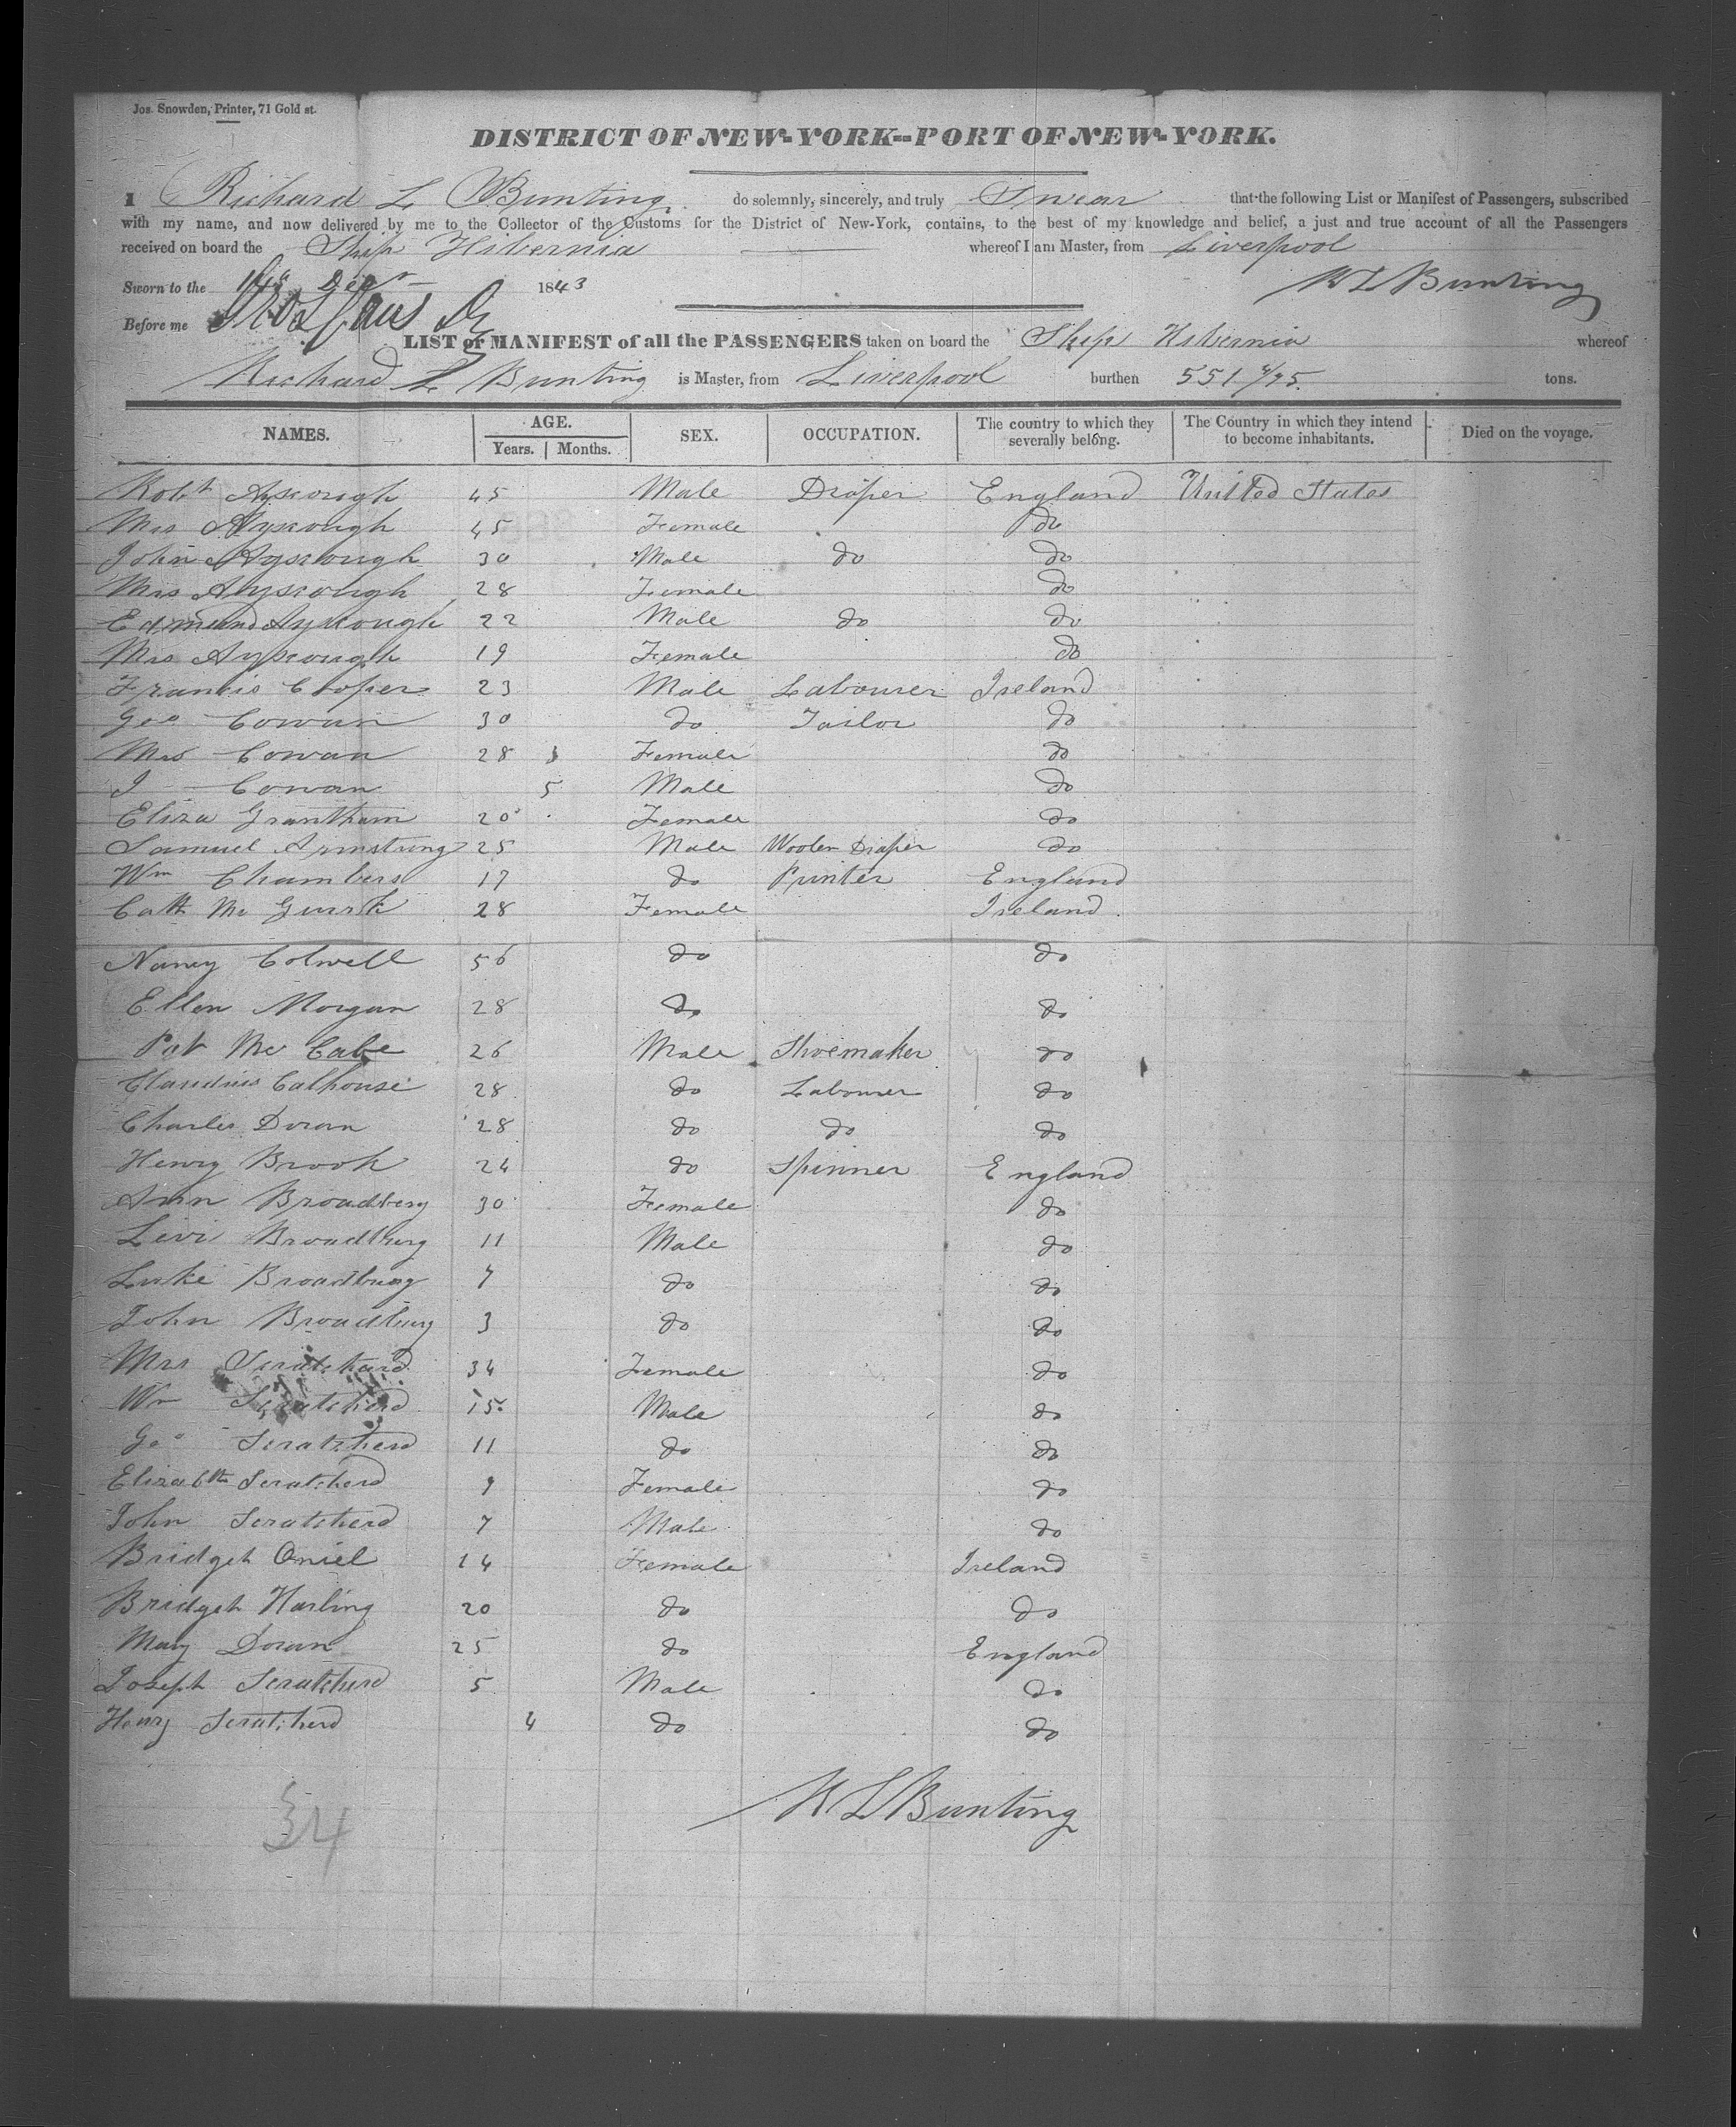 Jos. Snowden, Printer, 71 Gold st.
DISTRICT OF NEW-YORK--PORT OF NEW-YORK.
I Richard L Bunting do solemnly, sincerely, and truly Swear that the following List or Manifest of Passengers, subscribed
with my name, and now delivered by me to the Collector of the Customs for the District of New-York, contains, to the best of my knowledge and belief, a just and true account of all the Passengers
received on board the Ship Hibernia whereof I am Master, from Liverpool
Sworn to the 1843 R L Bunting
Before me
LIST or MANIFEST of all the PASSENGERS taken on board the Ship Hibernia whereof
Richard L Bunting is Master, from Liverpool burthen 551 tons.
NAMES. AGE. Years. Months. SEX. OCCUPATION. The country to which they severally belong. The Country in which they intend to become inhabitants. Died on the voyage.
Robt Ayscough 45 Male Draper England United States
Mrs Ayscough 45 Female do
John Ayscough 30 Male do do
Mrs Ayscough 28 Female do
Edmund Ayscough 22 Male do do
Mrs Ayscough 19 Female do
Francis Cooper 23 Male Labourer Ireland
Geo Cowan 30 do Tailor do
Mrs Cowan 28 Female do
J Cowan 5 Male do
Eliza Grantham 20 Female do
Samuel Armstrong 25 Male Woolen Draper do
Wm Chambers 17 do Printer England
Cath Mc Gurrk 28 Female Ireland
Nancy Colwell 56 do do
Ellen Morgan 28 do do
Pat Mc Cabe 26 Male Shoemaker do
Claudius Calhouse 28 do Labourer do
Charles Doran 28 do do do
Henry Brook 24 do Spinner England
Ann Broadberg 30 Female do
Levi Broadburg 11 Male do
Luke Broadburg 7 do do
John Broadburg 3 do do
Mrs Scratcherd 34 Female do
Wm Scratcherd 15 Male do
Geo Scratcherd 11 do do
Elizabth Scratcherd 9 Female do
John Scratcherd 7 Male do
Bridget Oniel 14 Female Ireland
Bridget Harling 20 do do
Mary Doran 25 do England
Joseph Scratcherd 5 Male do
Henry Scratcherd 4 do do
R L Bunting
34